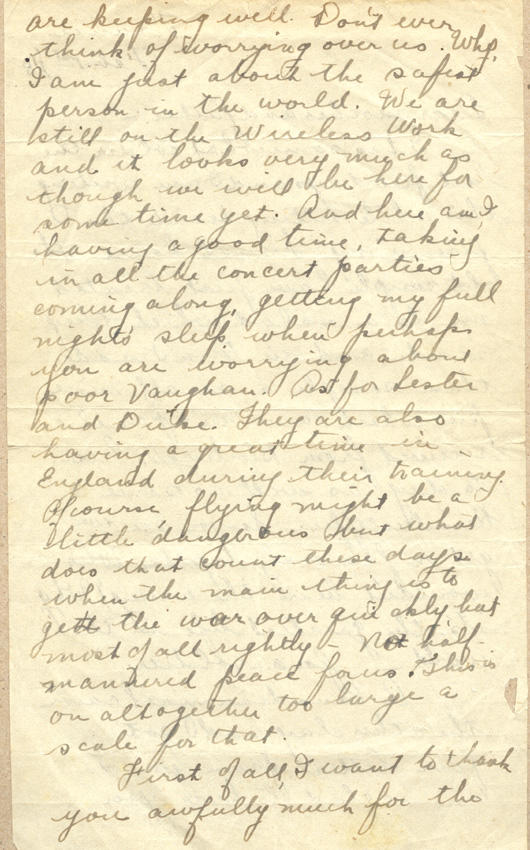 are keeping well. Don't ever
think of worrying over us. Why,
I am just about the safest
person in the world. We are
still on the Wireless Work
and it looks very much as
though we will be here for
some time yet. And here am I
having a good time, taking
in all the concert parties
coming along, getting my full
night's sleep when perhaps
you are worrying about
poor Vaughan. As for Lester
and Duke. They are also
having a great time in
England during their training.
Of course flying might be a
little dangerous but what
does that count these days
when the main thing is to
get the war over quickly but
most of all rightly - Not half
mannered peace for us. This is
on altogether too large a
scale for that.
First of all, I want to thank
you awfully much for the